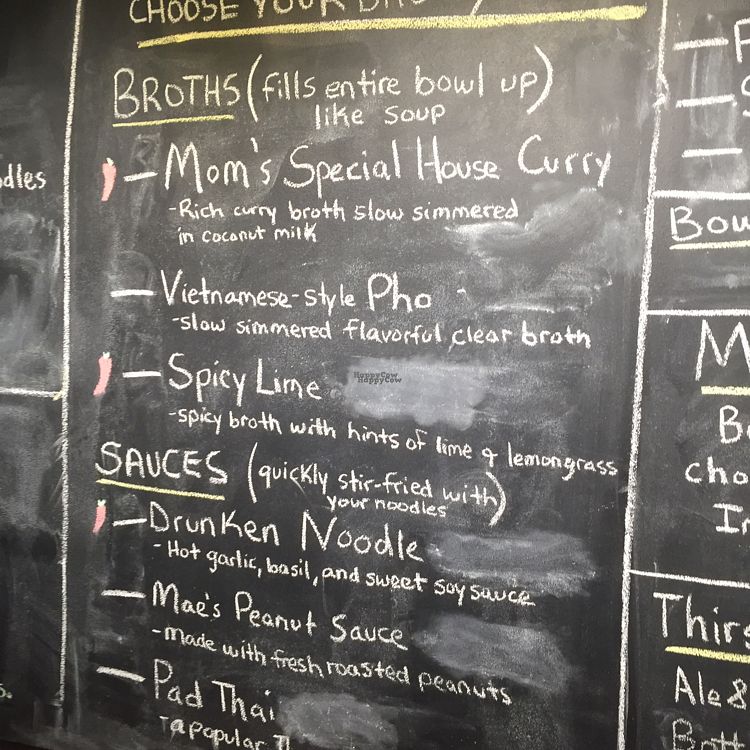 CHOOSE YOUR
BROTHS (fills entire bowl up)
like soup
— Mom's Special House Curry
-Rich curry broth slow simmered
in coconut milk
— Vietnamese-style Pho
-slow simmered flavorful clear broth
— Spicy Lime
HappyCow
HappyCow
-spicy broth with hints of lime & lemongrass
SAUCES (quickly stir-fried with)
your noodles
— Drunken Noodle
- Hot garlic, basil, and sweet soy sauce
— Mae's Peanut Sauce
-made with fresh roasted peanuts
— Pad Thai
-a popular
dles
Bow
M
B
cho
I
Thirs
Ale &
Bott